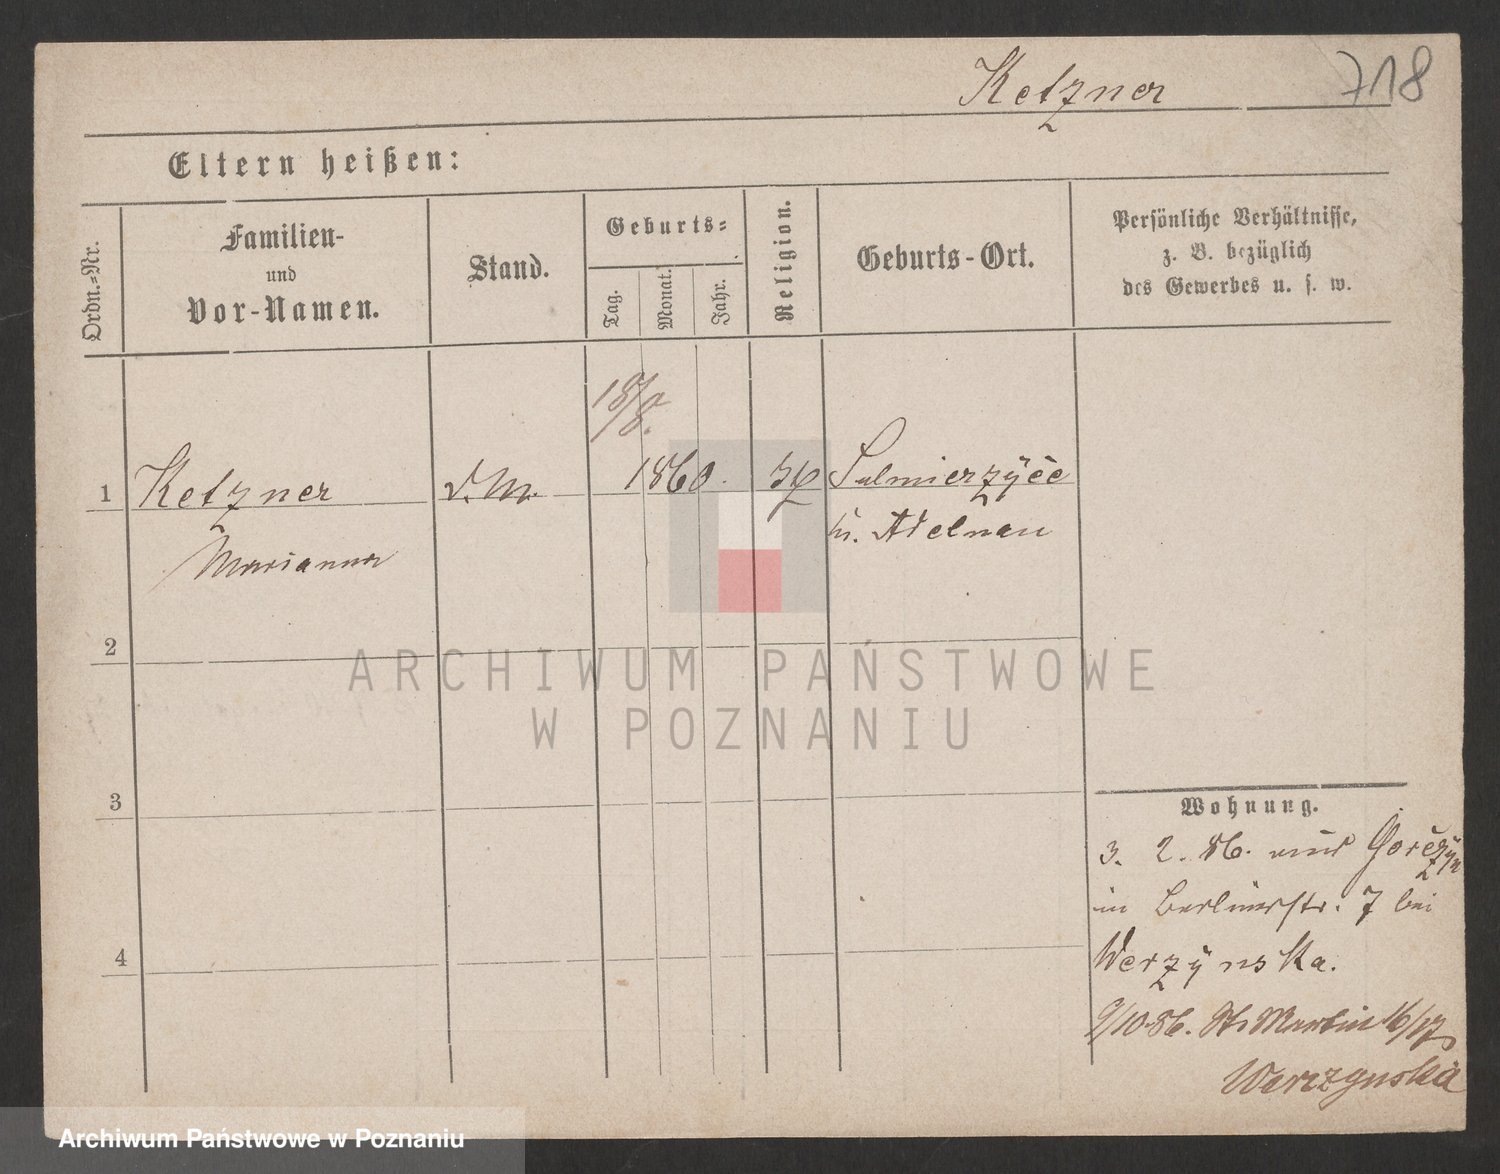 Ketzner
718
Eltern heißen:
Ordn.-Nr.
Familien-
und
Vor-Namen.
Stand.
Geburts-
Tag.
Monat.
Jahr.
Religion.
Geburts-Ort.
Persönliche Verhältnisse,
z. B. bezüglich
des Gewerbes u. s. w.
18/8.
1 Ketzner d. M. 1860. Sulmierzyce
Marianna Kr. Adelnau
2
3
4
Wohnung.
3. 2. 86. aus Gorczyn
in Berlinerstr. 7 bei
Werzynska.
9/10 86. St. Martin 16/17
Werzynska
ARCHIWUM PAŃSTWOWE
W POZNANIU
Archiwum Państwowe w Poznaniu